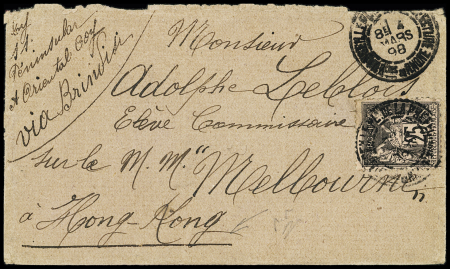 S.S.
Peninsular
& Oriental Coy
via Brindisi
Monsieur
Adolphe Leblois
Elève Commissaire
sur le M. M. "Melbourne"
à Hong-Kong
8E 4
MARS
98
25